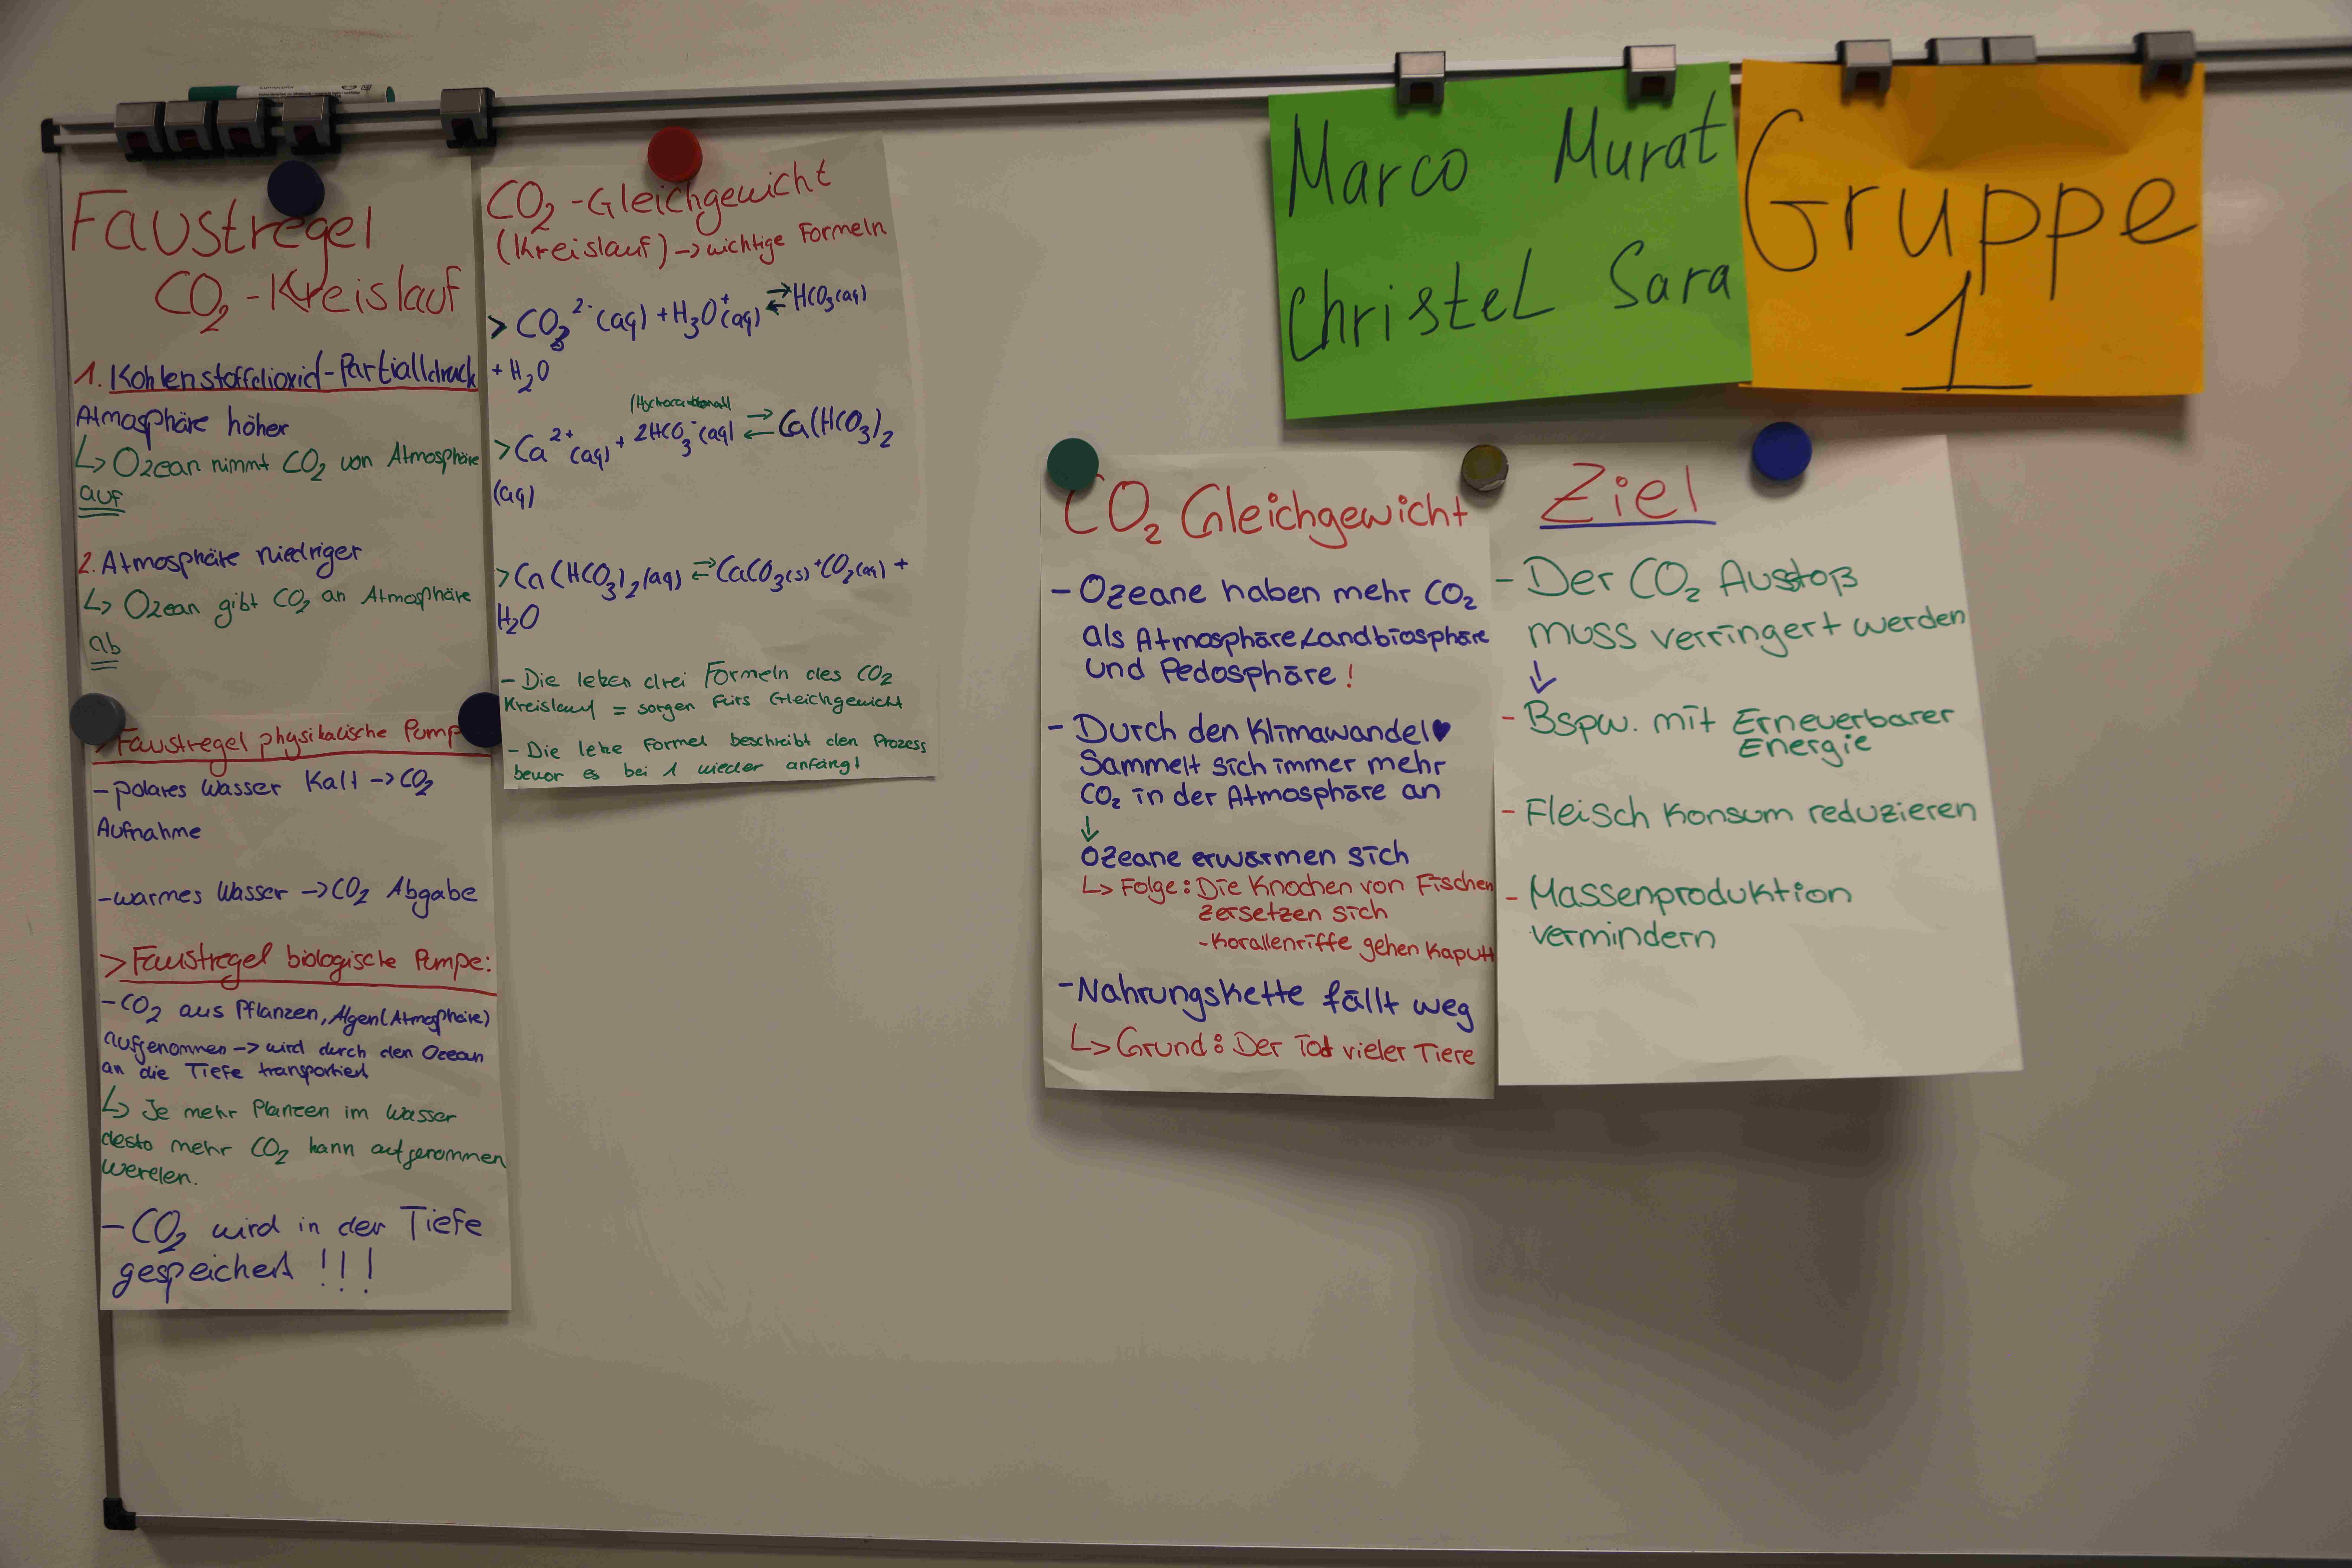 Faustregel
CO₂-Kreislauf
1. Kohlenstoffdioxid-Partialldruck
Atmosphäre höher
↳ Ozean nimmt CO₂ von Atmosphäre
auf
2. Atmosphäre niedriger
↳ Ozean gibt CO₂ an Atmosphäre
ab
> Faustregel physikalische Pump
- polares Wasser Kalt → CO₂
Aufnahme
- warmes Wasser → CO₂ Abgabe
> Faustregel biologische Pumpe:
- CO₂ aus Pflanzen, Algen (Atmosphäre)
aufgenommen → wird durch den Ozean
an die Tiefe transportiert
↳ Je mehr Planzen im Wasser
desto mehr CO₂ kann aufgenommen
werden.
- CO₂ wird in der Tiefe
gespeichert !!!
CO₂-Gleichgewicht
(Kreislauf) → wichtige Formeln
> CO₃²⁻(aq) + H₃O⁺(aq) ⇌ HCO₃(aq)
+ H₂O
(Hydrocarbonat)
> Ca²⁺(aq) + 2HCO₃⁻(aq) ⇌ Ca(HCO₃)₂
(aq)
> Ca(HCO₃)₂(aq) ⇌ CaCO₃(s) + CO₂(aq) +
H₂O
- Die letzen drei Formeln des CO₂
Kreislauf = sorgen fürs Gleichgewicht
- Die letze Formel beschreibt den Prozess
bevor es bei 1 wieder anfängt
Marco Murat
Christel Sara
Gruppe
1
CO₂ Gleichgewicht
- Ozeane haben mehr CO₂
als Atmosphäre, Landbiosphäre
und Pedosphäre!
- Durch den Klimawandel ♥
Sammelt sich immer mehr
CO₂ in der Atmosphäre an
↓
Ozeane erwärmen sich
↳ Folge: Die Knochen von Fischen
zersetzen sich
- Korallenriffe gehen Kaputt
- Nahrungskette fällt weg
↳ Grund: Der Tod vieler Tiere
Ziel
- Der CO₂ Ausstoß
muss verringert werden
↓
- Bspw. mit Erneuerbarer
Energie
- Fleisch Konsum reduzieren
- Massenproduktion
vermindern